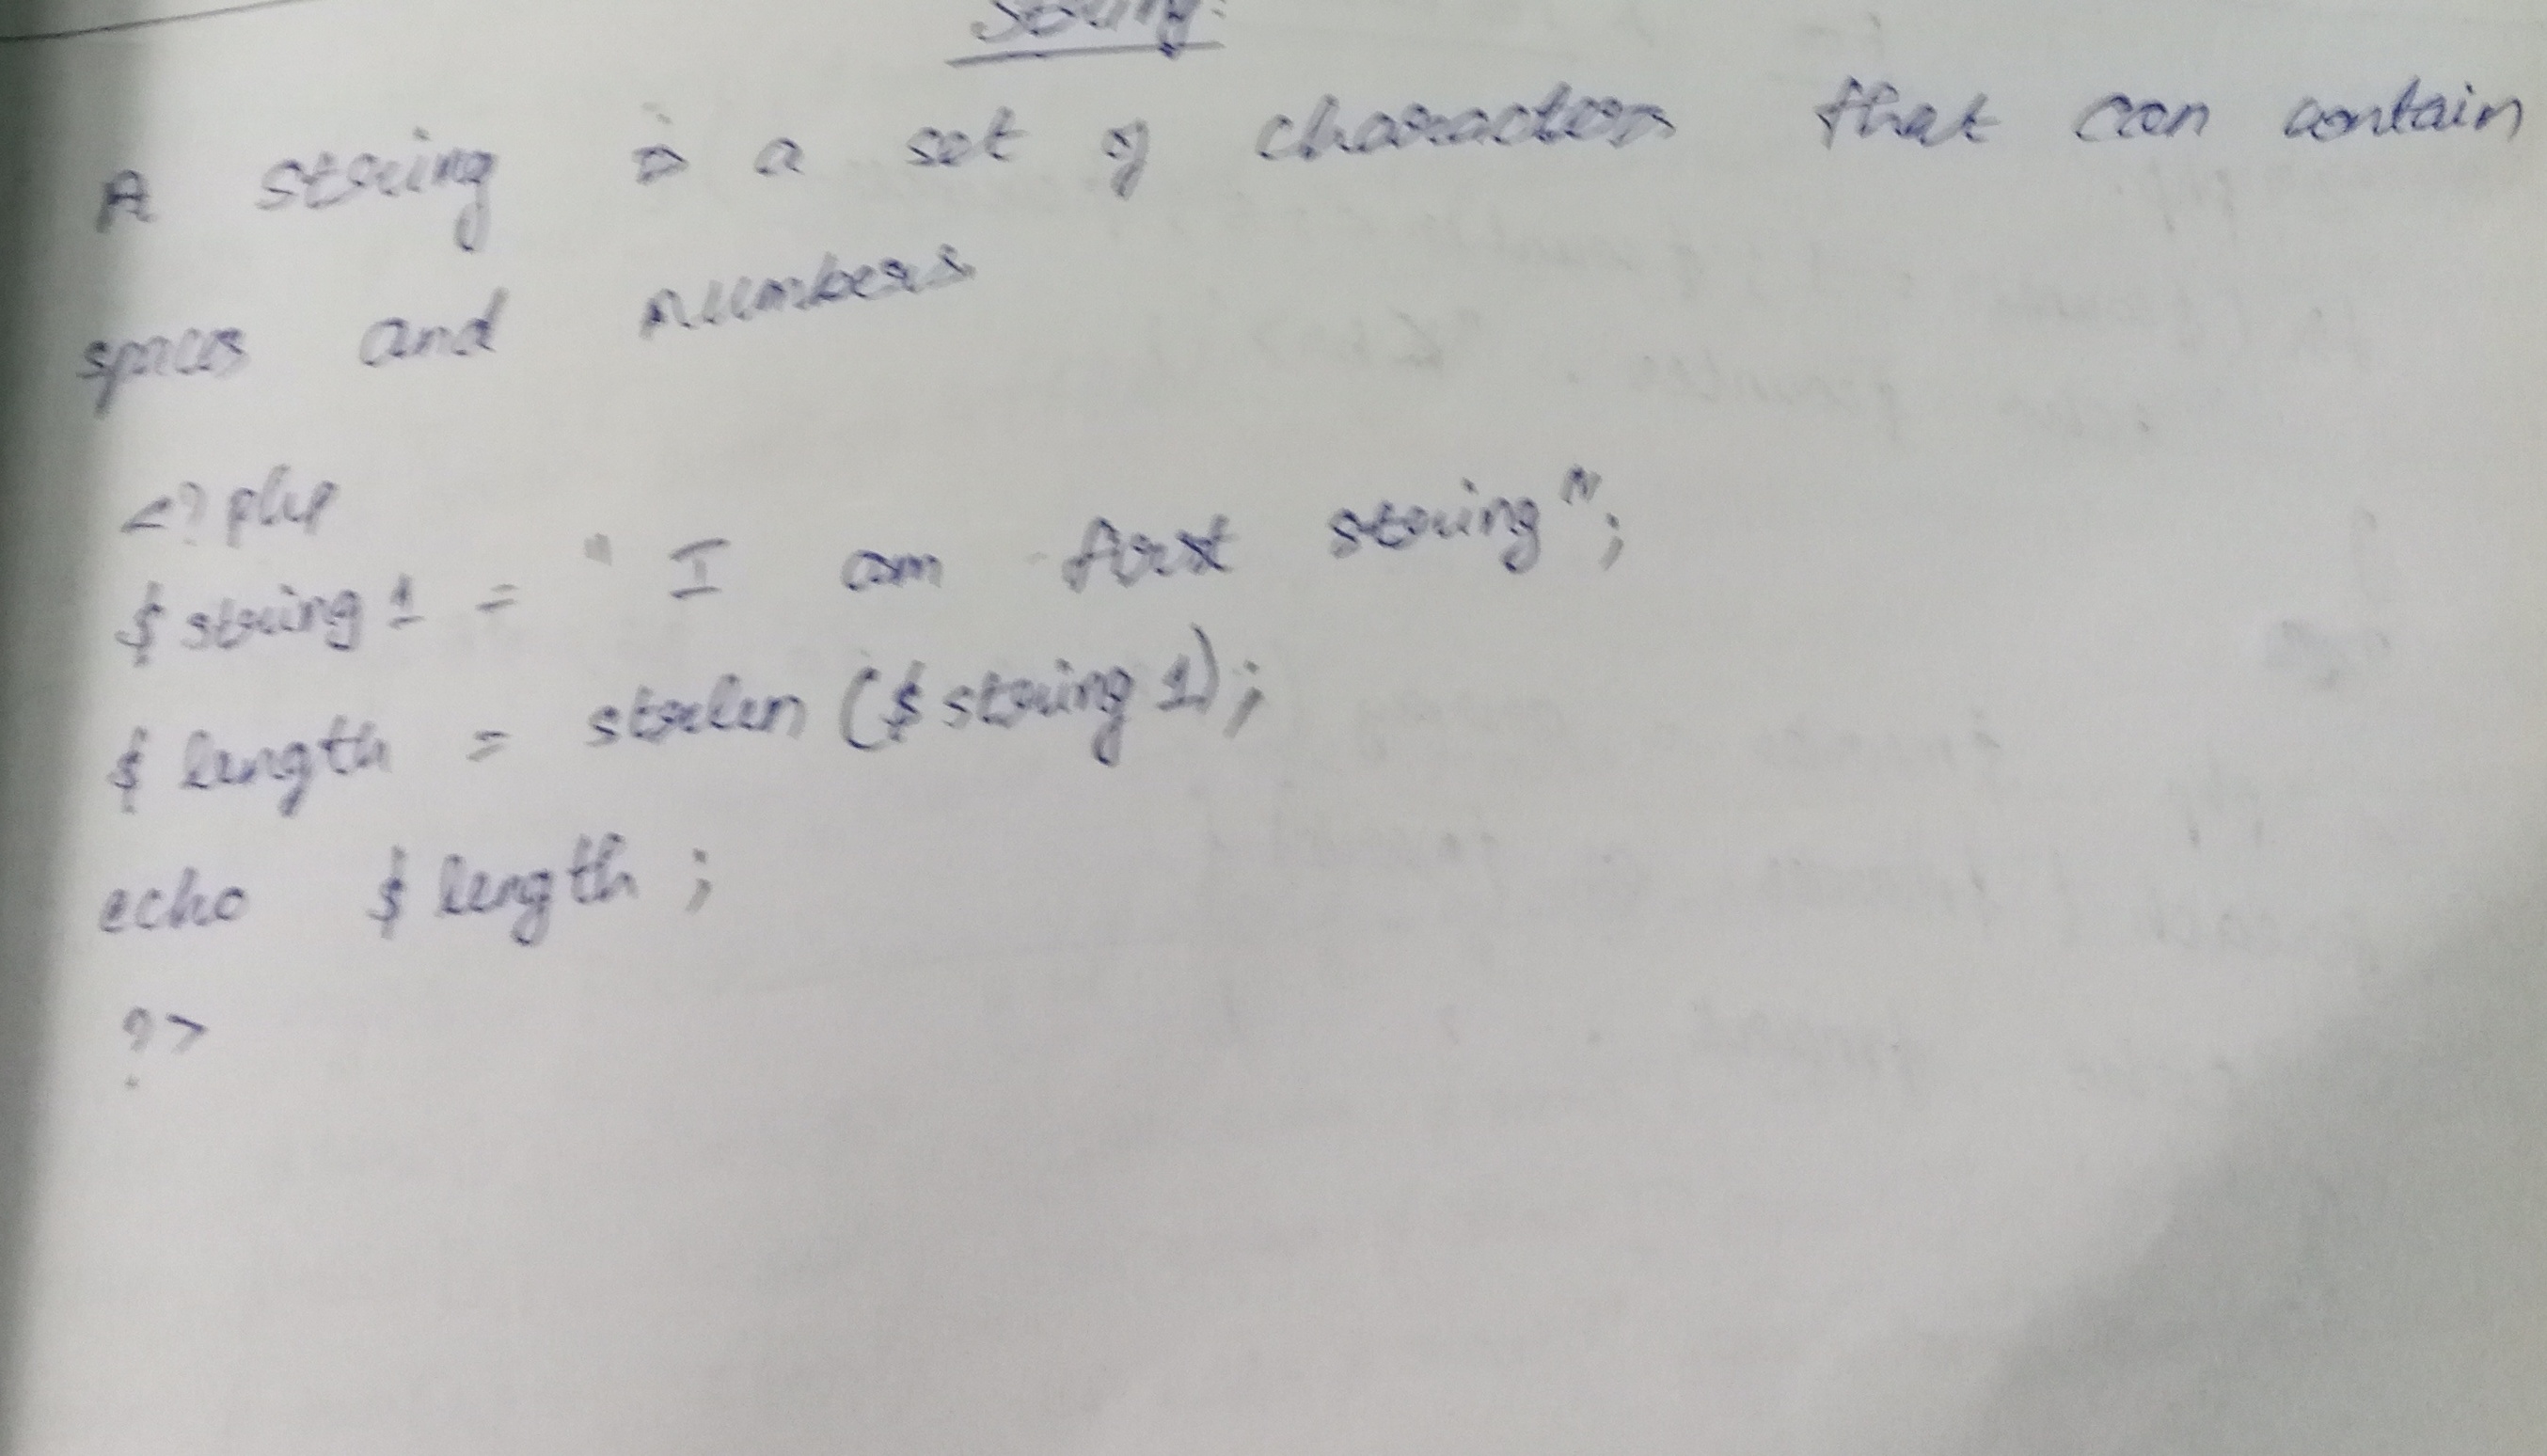 String:
A string is a set of characters that can contain
spaces and numbers
<?php
$string1 = "I am first string";
$length = strlen ($string1);
echo $length;
?>